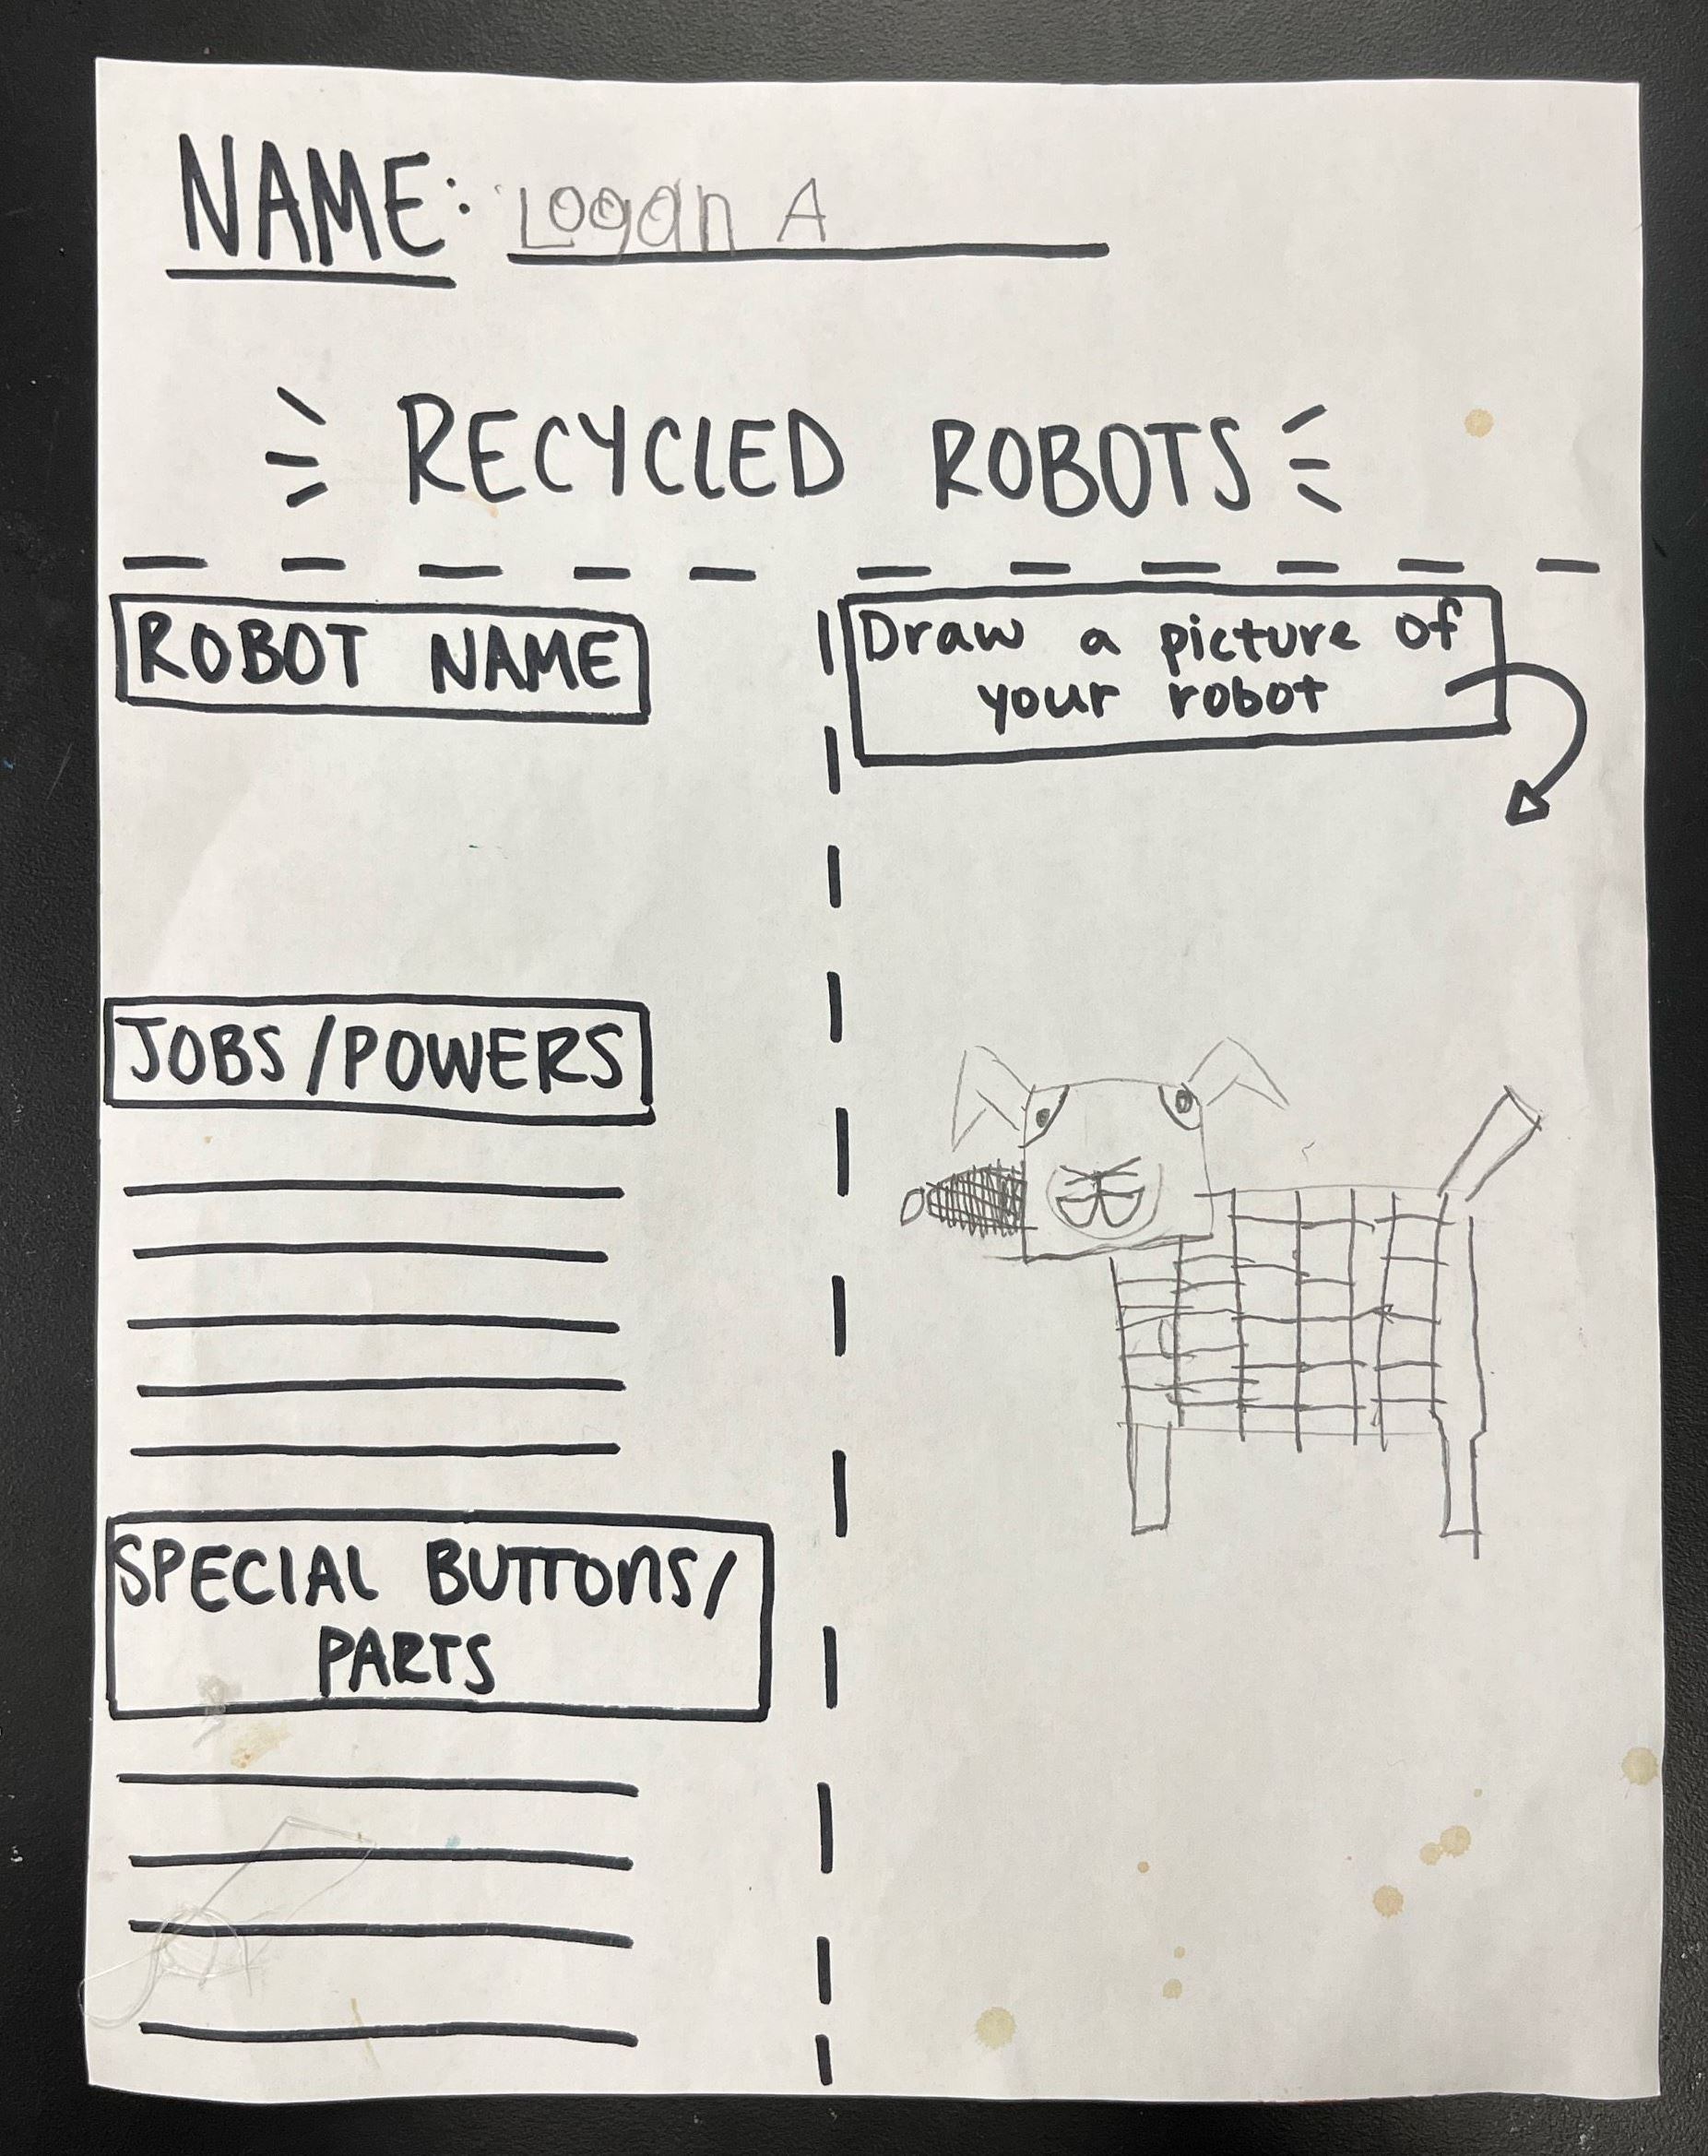 NAME: Logan A
RECYCLED ROBOTS
ROBOT NAME
JOBS/POWERS
SPECIAL BUTTONS/
PARTS
Draw a picture of
your robot